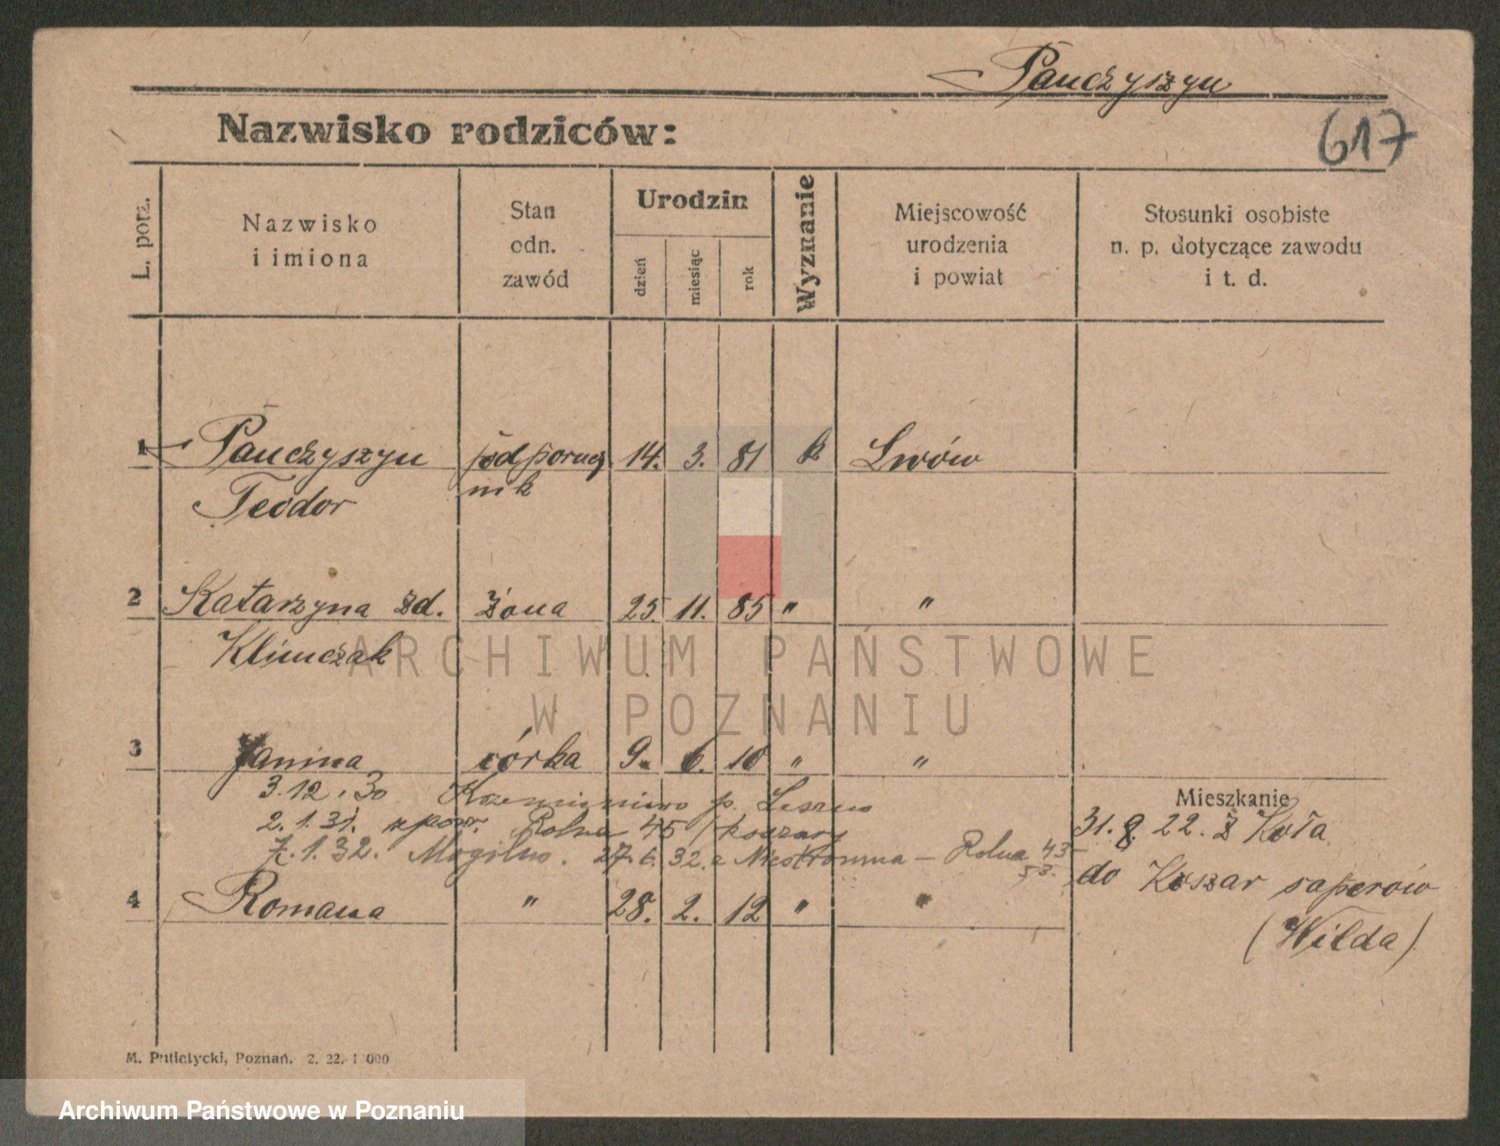 Panczyszyn
617
Nazwisko rodziców:
L. porz.
Nazwisko
i imiona
Stan
odn.
zawód
Urodzin
dzień
miesiąc
rok
Wyznanie
Miejscowość
urodzenia
i powiat
Stosunki osobiste
n. p. dotyczące zawodu
i t. d.
1 Panczyszyn podporucz 14. 3. 81 k Lwów
Teodor nik
2 Katarzyna zd. żona 25. 11. 85 " "
Klimczak
ARCHIWUM PAŃSTWOWE
W POZNANIU
3 Janina córka 9. 6. 10 " "
3.12.30 p. Leszno
Mieszkanie
2.1.31. Rolna 45 / koszary
31. 8. 22. z Koła
7.1.32. Mogilno. 27.6.32. z - Rolna 43-
53.
do Koszar saperów
4 Romana " 28. 2. 12 " "
(Wilda)
M. Putiatycki, Poznań. 2. 22. 1 000
Archiwum Państwowe w Poznaniu